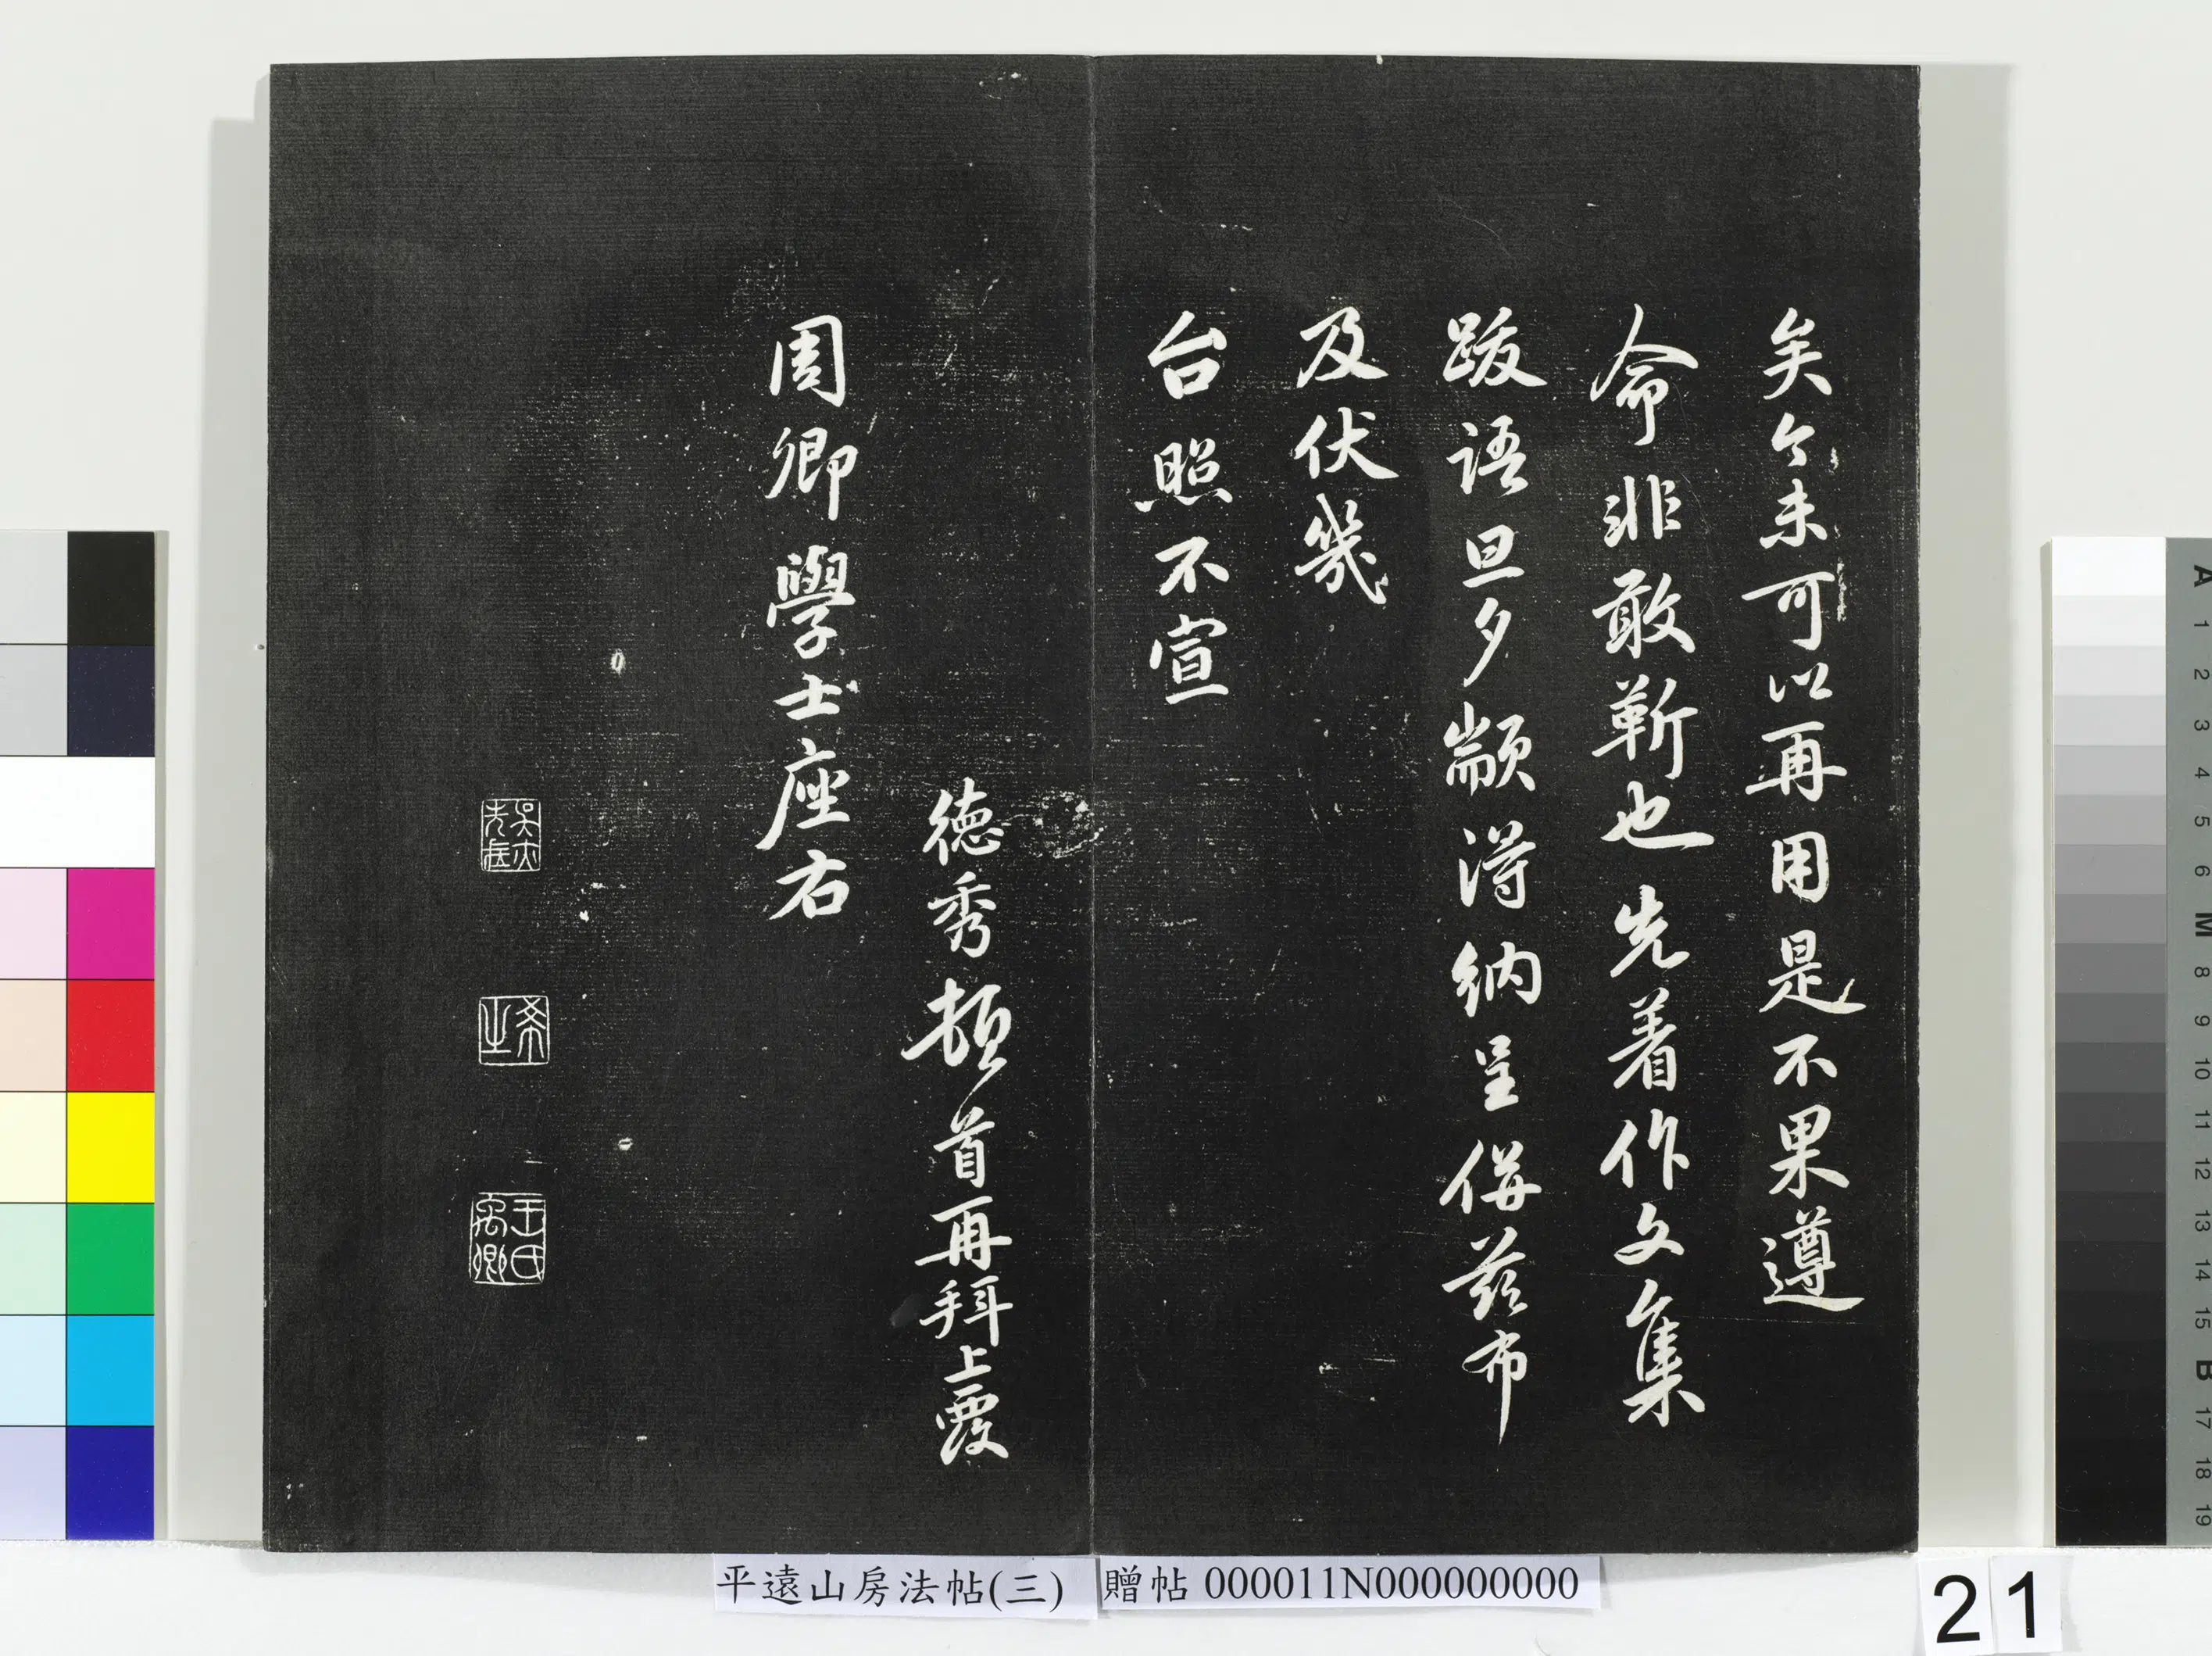 矣今未可以再用是不果遵
命非敢靳也先着作文集
跋語旦夕顓得納呈併茲布
及伏幾
台照不宣
德秀頓首再拜上覆
周卿學士座右
希之
王氏禹卿
平遠山房法帖(三)
贈帖 000011N000000000
21
A 1 2 3 4 5 6 M 8 9 10 11 12 13 14 15 B 17 18 19